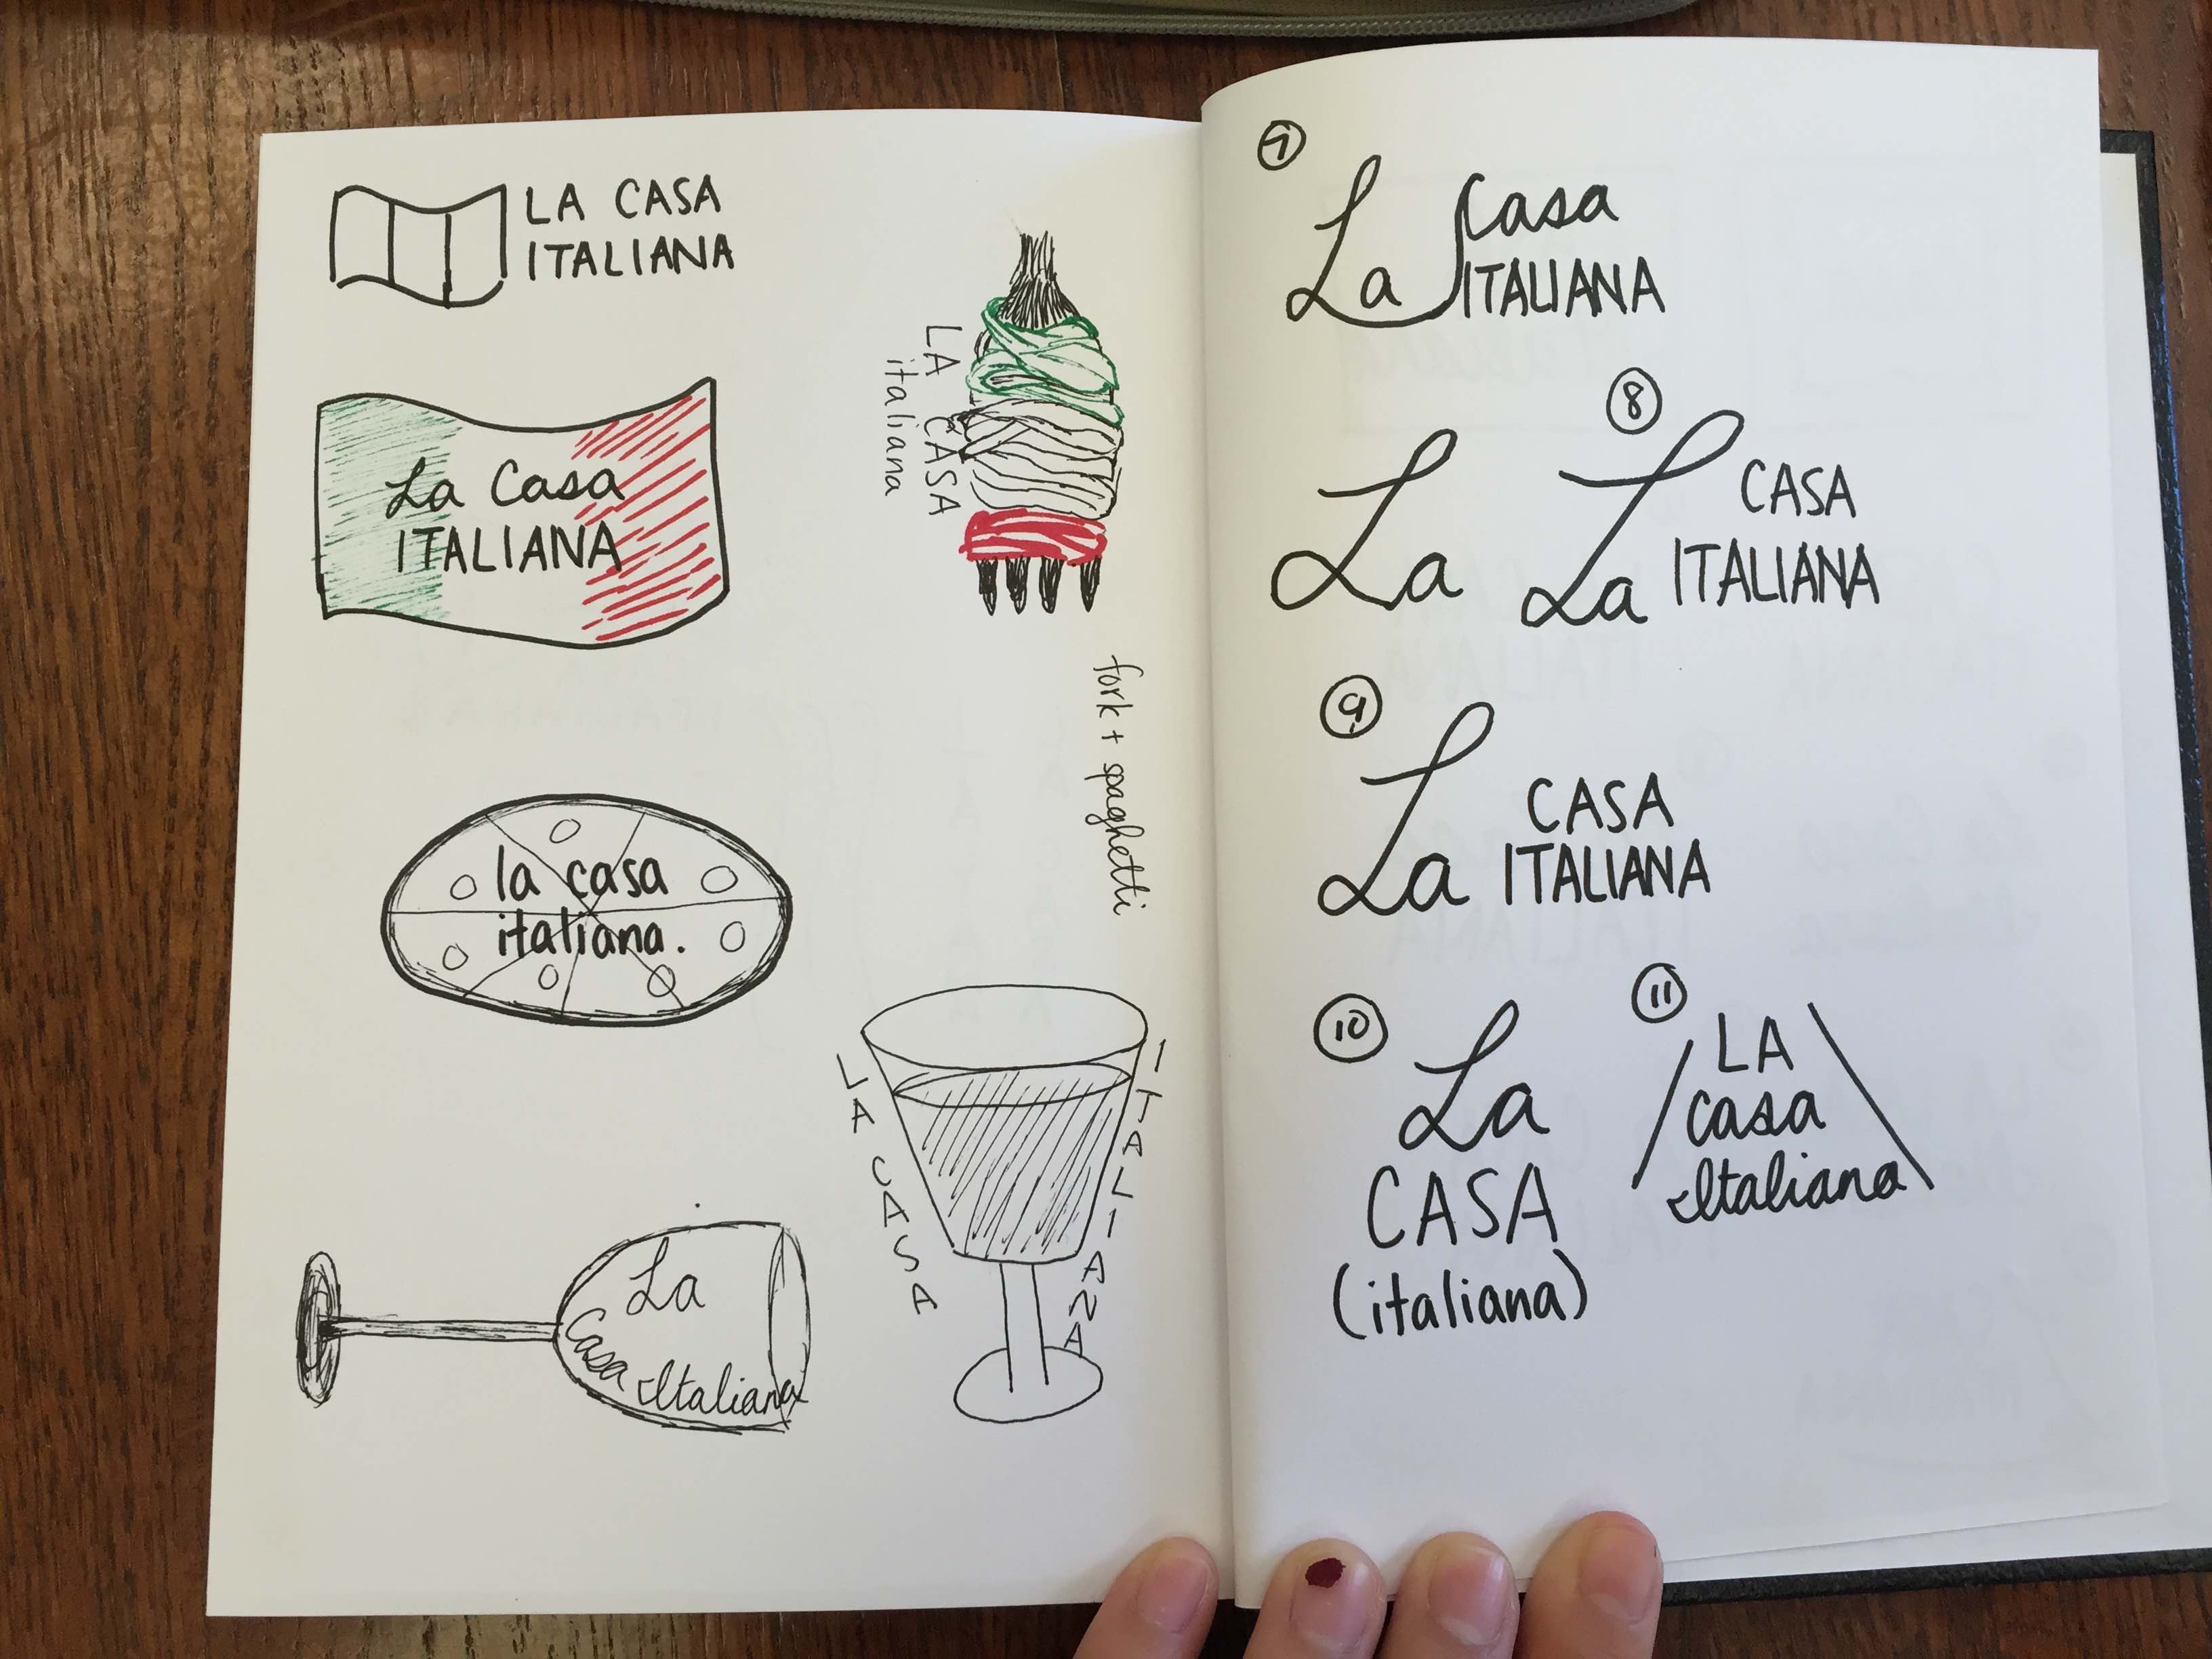 LA CASA
ITALIANA
La Casa
ITALIANA
la casa
italiana.
La
Casa Italiana
LA CASA
italiana
fork + spaghetti
LA CASA
ITALIANA
7
La Casa
ITALIANA
La
8
La CASA
ITALIANA
9
La CASA
ITALIANA
10
La
CASA
(italiana)
11
LA
casa
Italiana